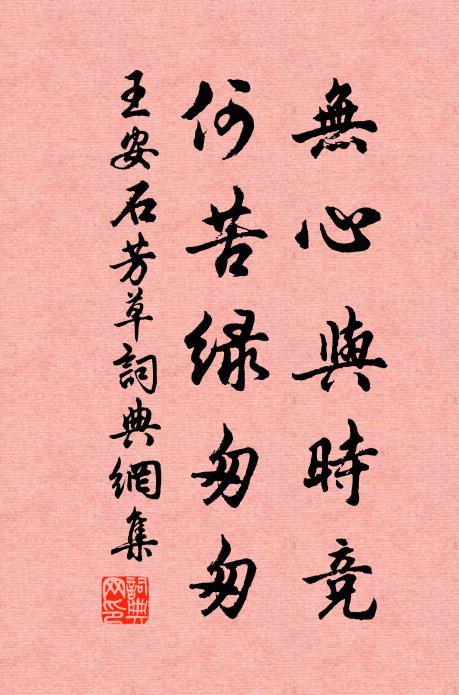 無心與時競
何苦緑匆匆
王安石芳草詞典網集
詞典網印